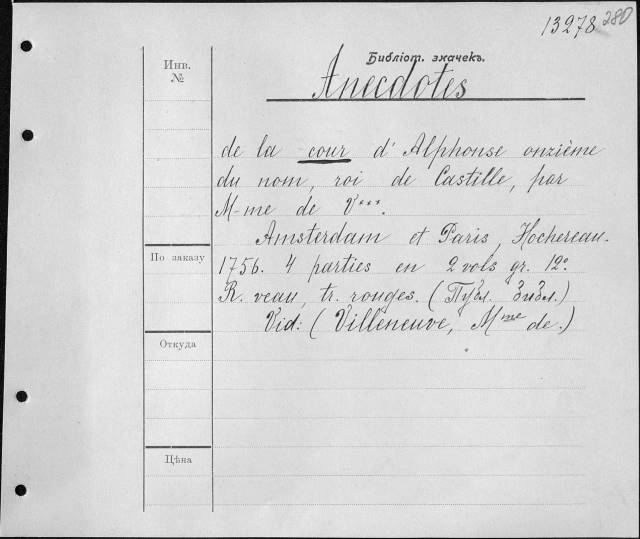 13278 280
Библіот. значекъ.
Инв.
№
Anecdotes
de la cour d'Alphonse onzième
du nom, roi de Castille, par
M-me de V***.
Amsterdam et Paris, Hochereau.
По заказу
1756. 4 parties en 2 vols gr. 12º.
R. veau, tr. rouges. (Публ. Библ.)
Vid: (Villeneuve, Mme de.)
Откуда
Цѣна